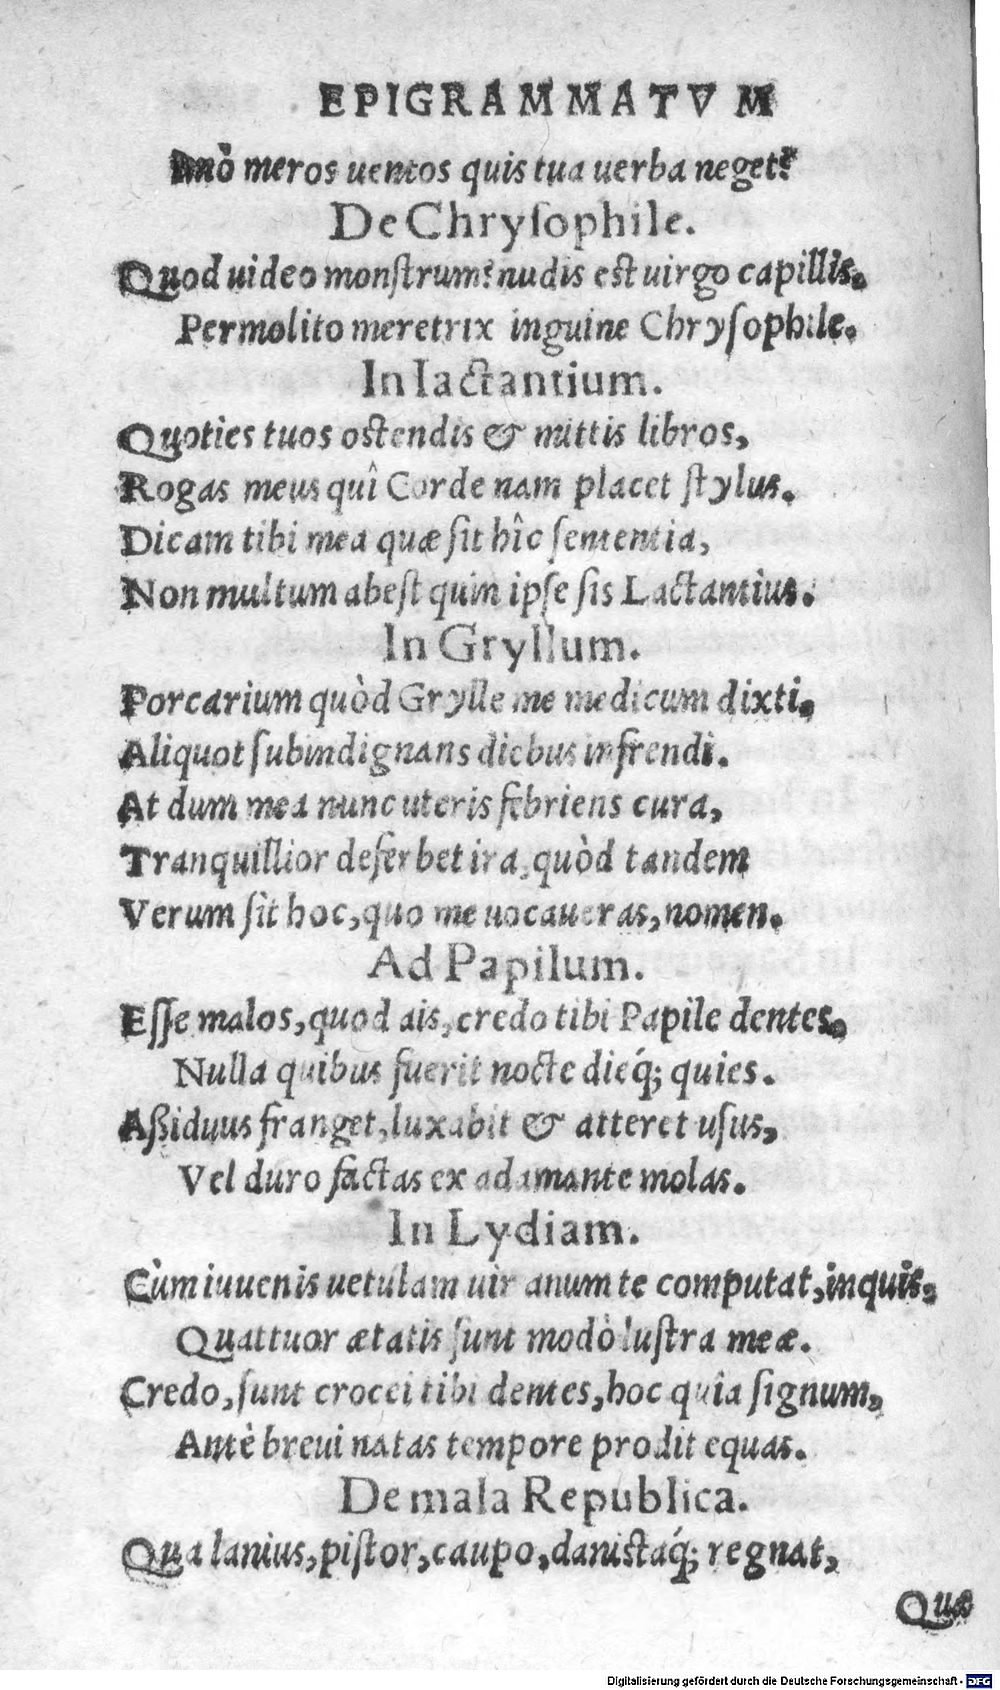 EPIGRAMMATVM
Annò meros uentos quis tua uerba neget?
De Chryſophile.
Quod uideo monſtrum? nudis est uirgo capillis.
Permolito meretrix inguine Chryſophile.
In Iactantium.
Quoties tuos ostendis & mittis libros,
Rogas meus quî Corde nam placet ſtylus.
Dicam tibi mea quæ ſit hîc ſententia,
Non multum abeſt quin ipſe ſis Lactantius.
In Gryllum.
Porcarium quòd Grylle me medicum dixti,
Aliquot ſubindignans diebus infrendi.
At dum mea nunc uteris febriens cura,
Tranquillior deferbet ira, quòd tandem
Verum ſit hoc, quo me uocaueras, nomen.
Ad Papilum.
Eſſe malos, quod ais, credo tibi Papile dentes,
Nulla quibus fuerit nocte dieq́; quies.
Aßiduus franget, luxabit & atteret uſus,
Vel duro factas ex adamante molas.
In Lydiam.
Cùm iuuenis uetulam uir anum te computat, inquis,
Quattuor ætatis ſunt modò luſtra meæ.
Credo, ſunt crocei tibi dentes, hoc quia ſignum,
Antè breui natas tempore prodit equas.
De mala Republica.
Qua lanius, piſtor, caupo, danistaq́; regnat,
Quæ
Digitalisierung gefördert durch die Deutsche Forschungsgemeinschaft - DFG